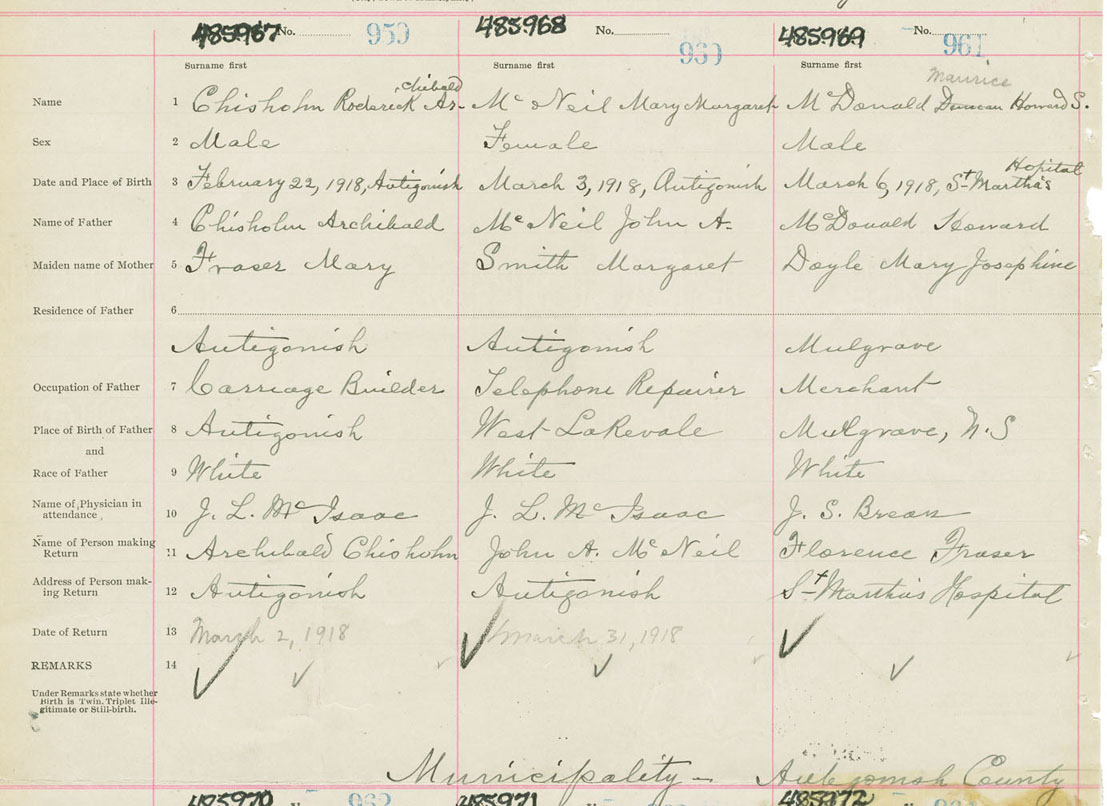 485967 No. 959 485968 No. 960 485969 No. 961
Surname first Surname first Surname first
Maurice
chibald
Name 1 Chisholm Roderick Ar- McNeil Mary Margaret McDonald Duncan Howard S.
Sex 2 Male Female Male
Hopital
Date and Place of Birth 3 February 22, 1918, Antigonish March 3, 1918, Antigonish March 6, 1918, St Martha's
Name of Father 4 Chisholm Archibald McNeil John A. McDonald Howard
Maiden name of Mother 5 Fraser Mary Smith Margaret Doyle Mary Josephine
Residence of Father 6
Antigonish Antigonish Mulgrave
Occupation of Father 7 Carriage Builder Telephone Repairer Merchant
Place of Birth of Father 8 Antigonish West Lakevale Mulgrave, N.S
and
Race of Father 9 White White White
Name of Physician in
attendance 10 J. L. McIsaac J. L. McIsaac J. S. Brean
Name of Person making
Return 11 Archibald Chisholm John A. McNeil Florence Fraser
Address of Person mak-
ing Return 12 Antigonish Antigonish St Martha's Hospital
Date of Return 13 March 2, 1918 March 31, 1918
REMARKS 14
Under Remarks state whether
Birth is Twin, Triplet Ille-
gitimate or Still-birth.
Municipality - Antigonish County
485970 962 485971 485972